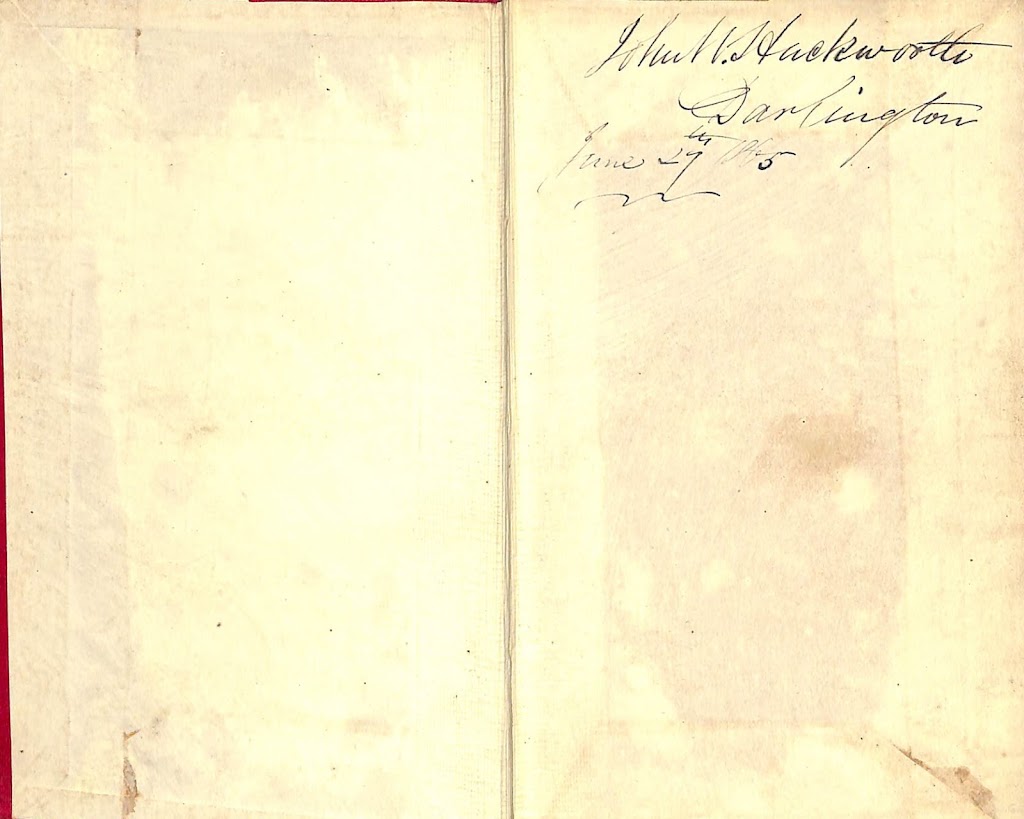 John W. Hackworth
Darlington
June 29th 1865